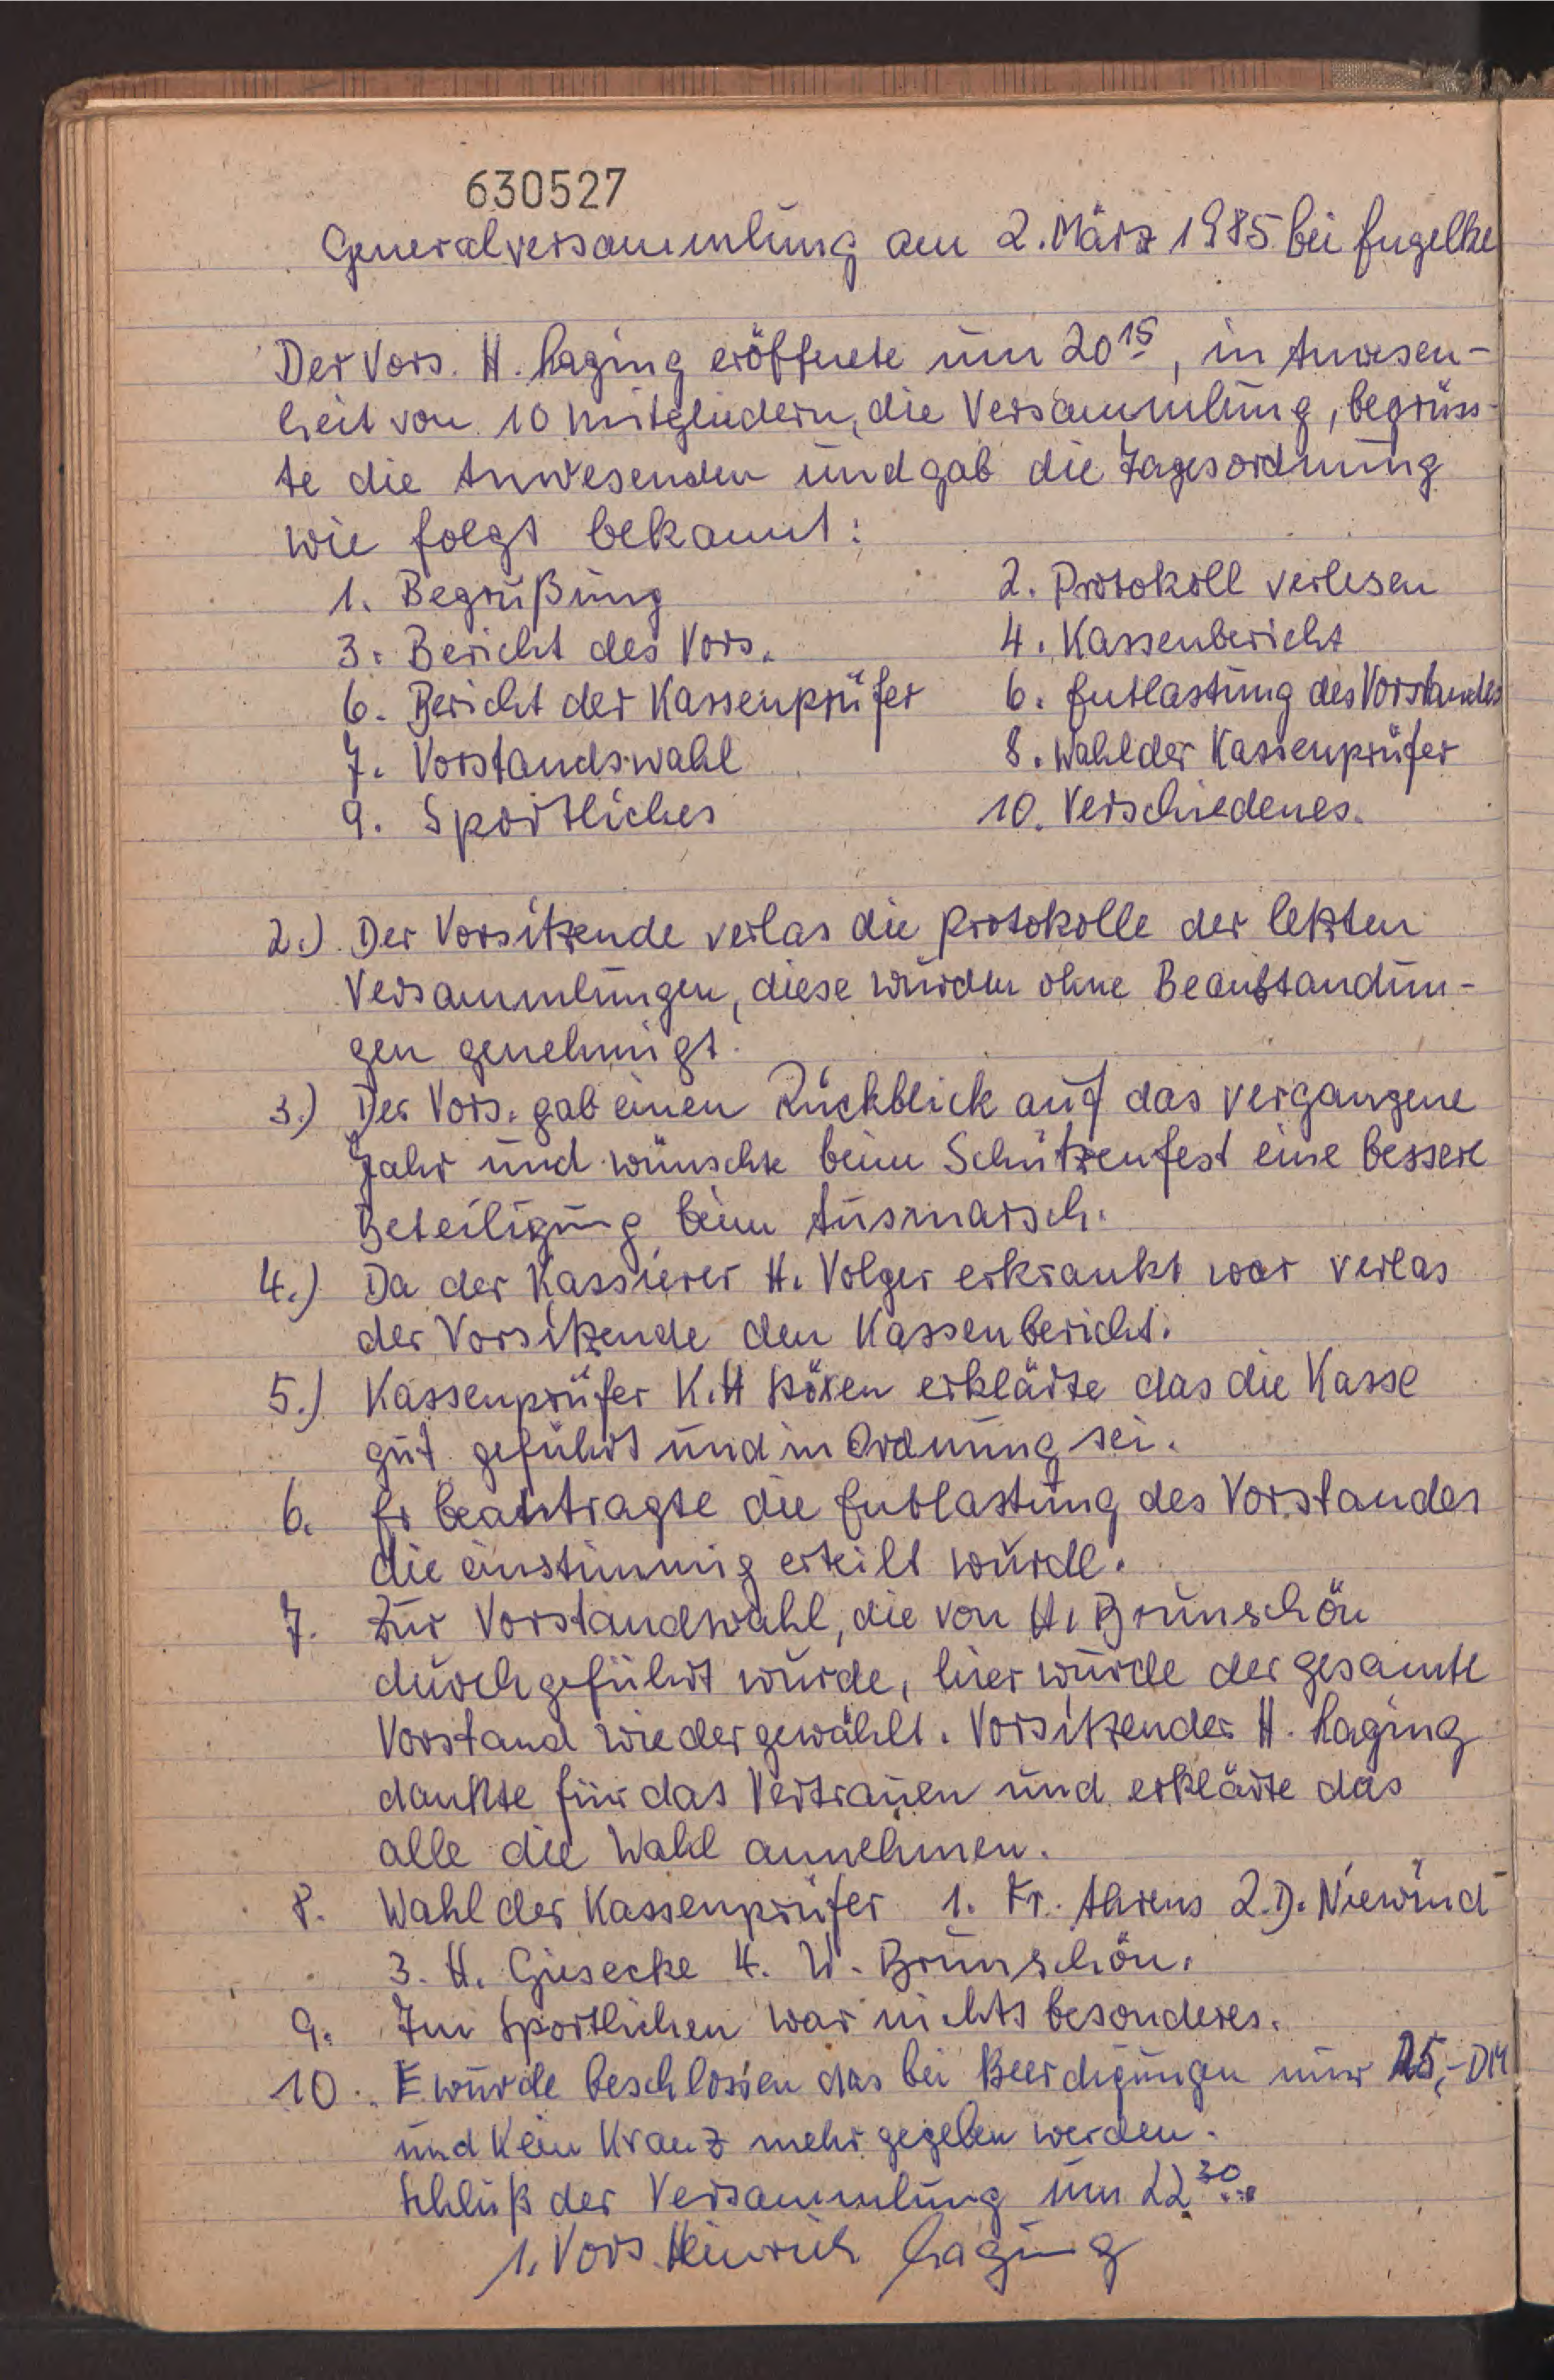 630527
Generalversammlung am 2. März 1985 bei Engelke
Der Vors. H. Laging eröffnete um 20 15, in Anwesen-
heit von 10 Mitgliedern, die Versammlung, begrüss-
te die Anwesenden und gab die Tagesordnung
wie folgt bekannt:
1. Begrüßung 2. Protokoll verlesen
3. Bericht des Vors. 4. Kassenbericht
6. Bericht der Kassenprüfer 6. Entlastung des Vorstandes
7. Vorstandswahl 8. Wahl der Kassenprüfer
9. Sportliches 10. Verschiedenes.
2.) Der Vorsitzende verlas die Protokolle der letzten
Versammlungen, diese wurden ohne Beanstandun-
gen genehmigt.
3.) Der Vors. gab einen Rückblick auf das vergangene
Jahr und wünschte beim Schützenfest eine bessere
Beteiligung beim Ausmarsch.
4.) Da der Kassierer H. Volger erkrankt war verlas
der Vorsitzende den Kassenbericht.
5.) Kassenprüfer K.H erklärte das die Kasse
gut geführt und in Ordnung sei.
6. Er beantragte die Entlastung des Vorstandes
die einstimmig erteilt wurde.
7. Zur Vorstandswahl, die von H. Brunschön
durchgeführt wurde, hier wurde der gesamte
Vorstand wiedergewählt. Vorsitzender H. Laging
dankte für das Vertrauen und erklärte das
alle die Wahl annehmen.
8. Wahl der Kassenprüfer 1. Fr. Ahrens 2. D. Niewind
3. H. Giesecke 4. W. Brunschön.
9. Im Sportlichen war nichts besonderes.
10. E wurde beschlossen das bei Beerdigungen nur 25,- DM
und kein Kranz mehr gegeben werden.
Schluß der Versammlung um 22 30
1. Vors. Heinrich Laging